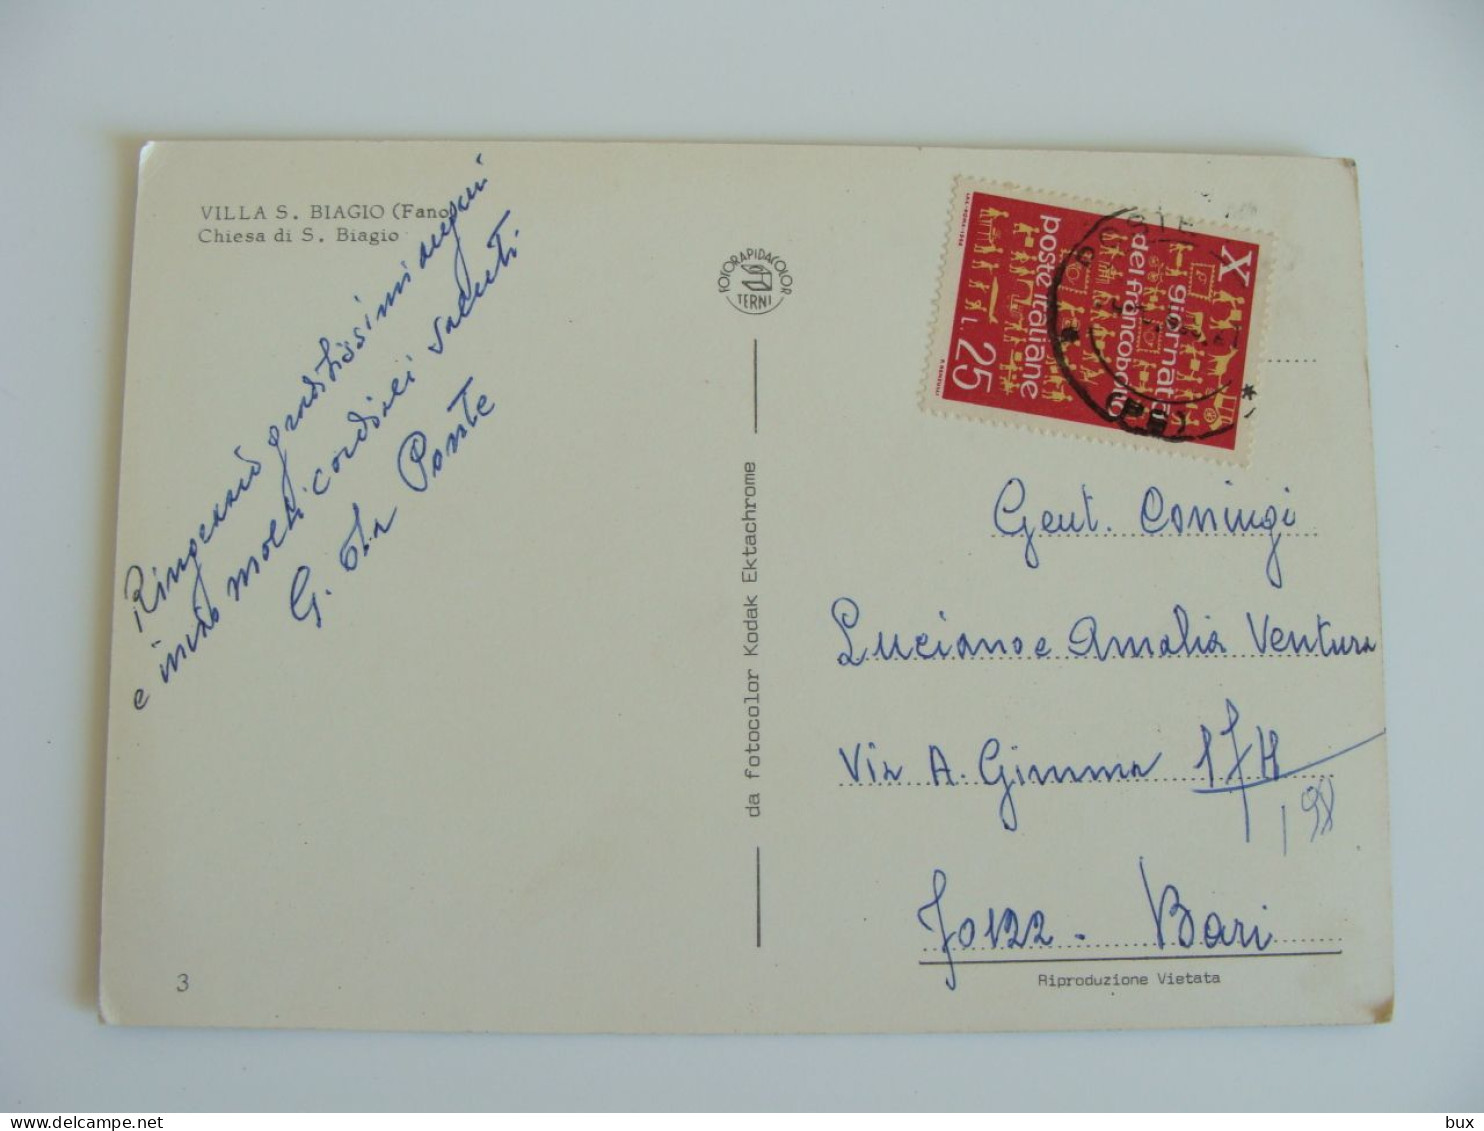 VILLA S. BIAGIO (Fano)
Chiesa di S. Biagio
Ringrazio graditissimi auguri
e invio molti cordiali saluti
G. Da Ponte
3
FOTORAPIDACOLOR
TERNI
da fotocolor Kodak Ektachrome
X giornata
del francobollo
poste italiane
L. 25
POSTE
Gent. Coniugi
Luciano e Amalia Ventura
Via A. Gimma 17H
198
70122 - Bari
Riproduzione Vietata
bux